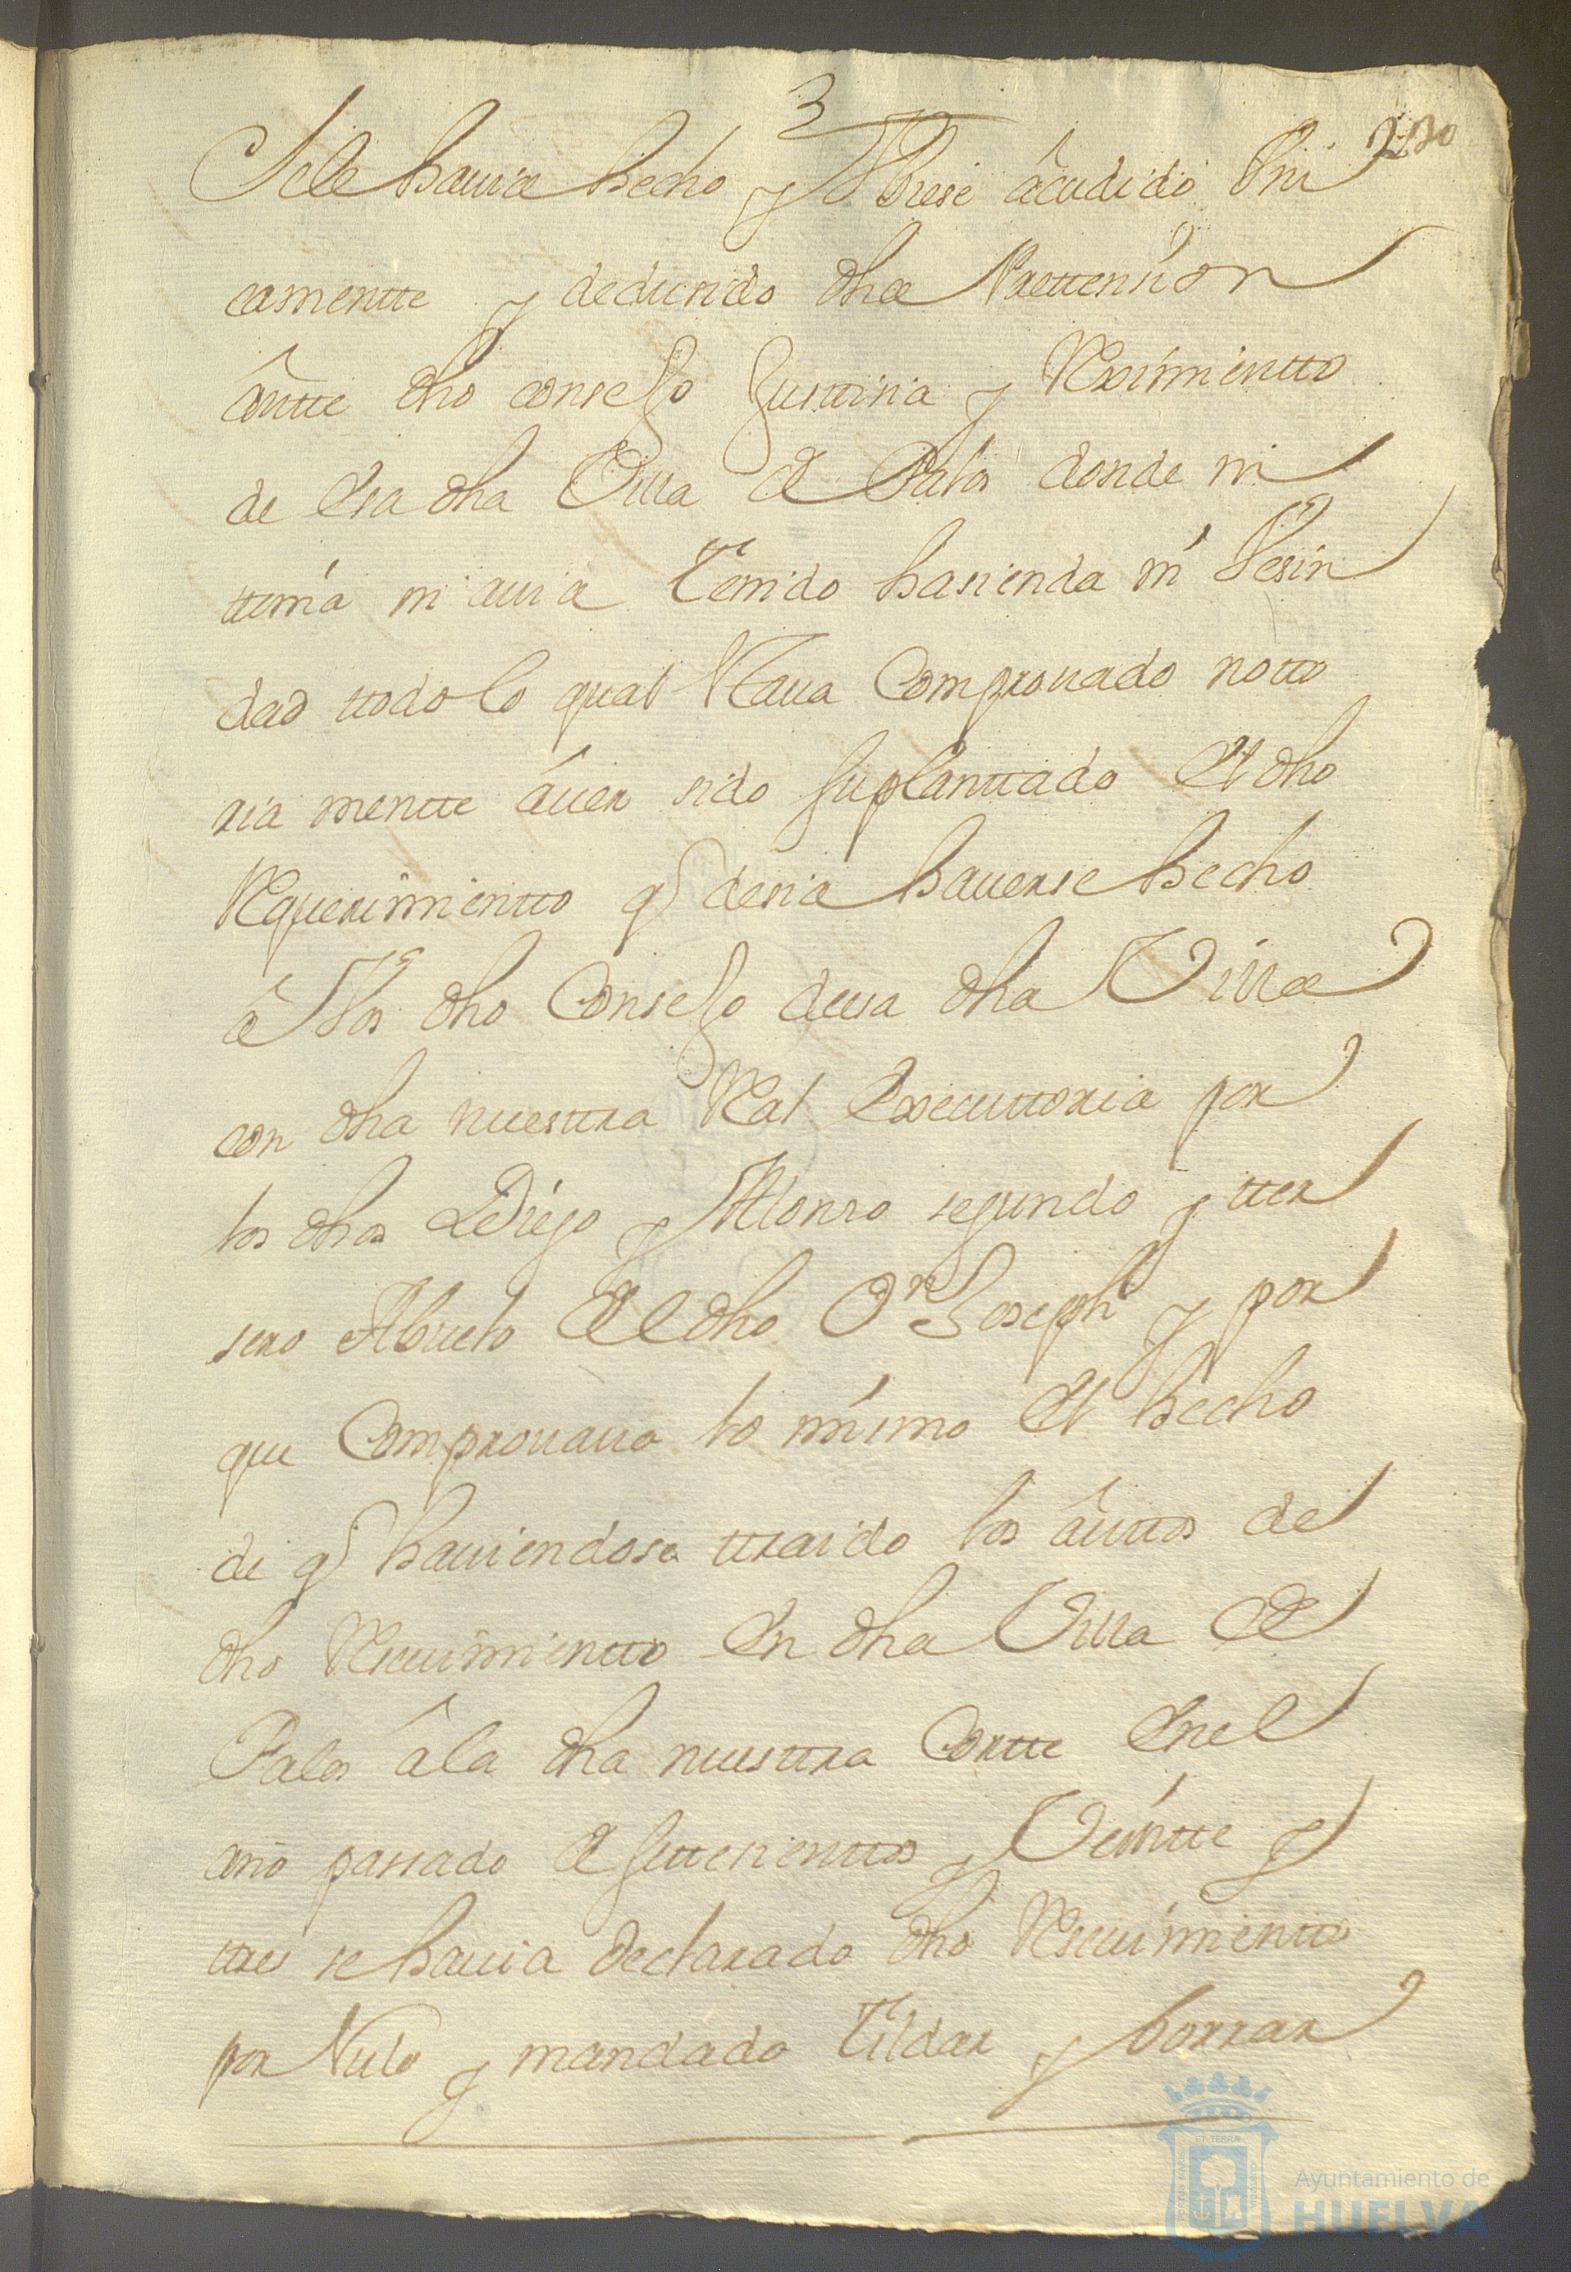 3
230
Sele hauia hecho y Vbiese âcudido Vni
camentte y dedusido dha Prettension
ântte dho conseJo Justisia y Reximientto
de esa dha Villa de Palos donde ni
tenia ni auia Tenido hasienda ni Vesin
dad ttodo lo qual Staua Comprouado notto
riamentte âuer sido suplanttado El dho
Requerimientto q desia hauerse hecho
â Vos dho ConseJo deesa dha Villa
con dha nuesttra Real Executtoria por
los dhos Diego y Alonso segundo y tter
sero Abuelo del dho Dn Joseph y por
que Comprouaua lo mismo El hecho
de q hauiendose ttraido los âuttos de
dho Reseuimientto En dha Villa de
Palos âla dha nuesttra Cortte Enel
año passado de settesienttos y Veintte y
ttres se hauia declarado dho Reseuimientto
por Nulo y mandado Tildar y borrar
Ayuntamiento de
HUELVA